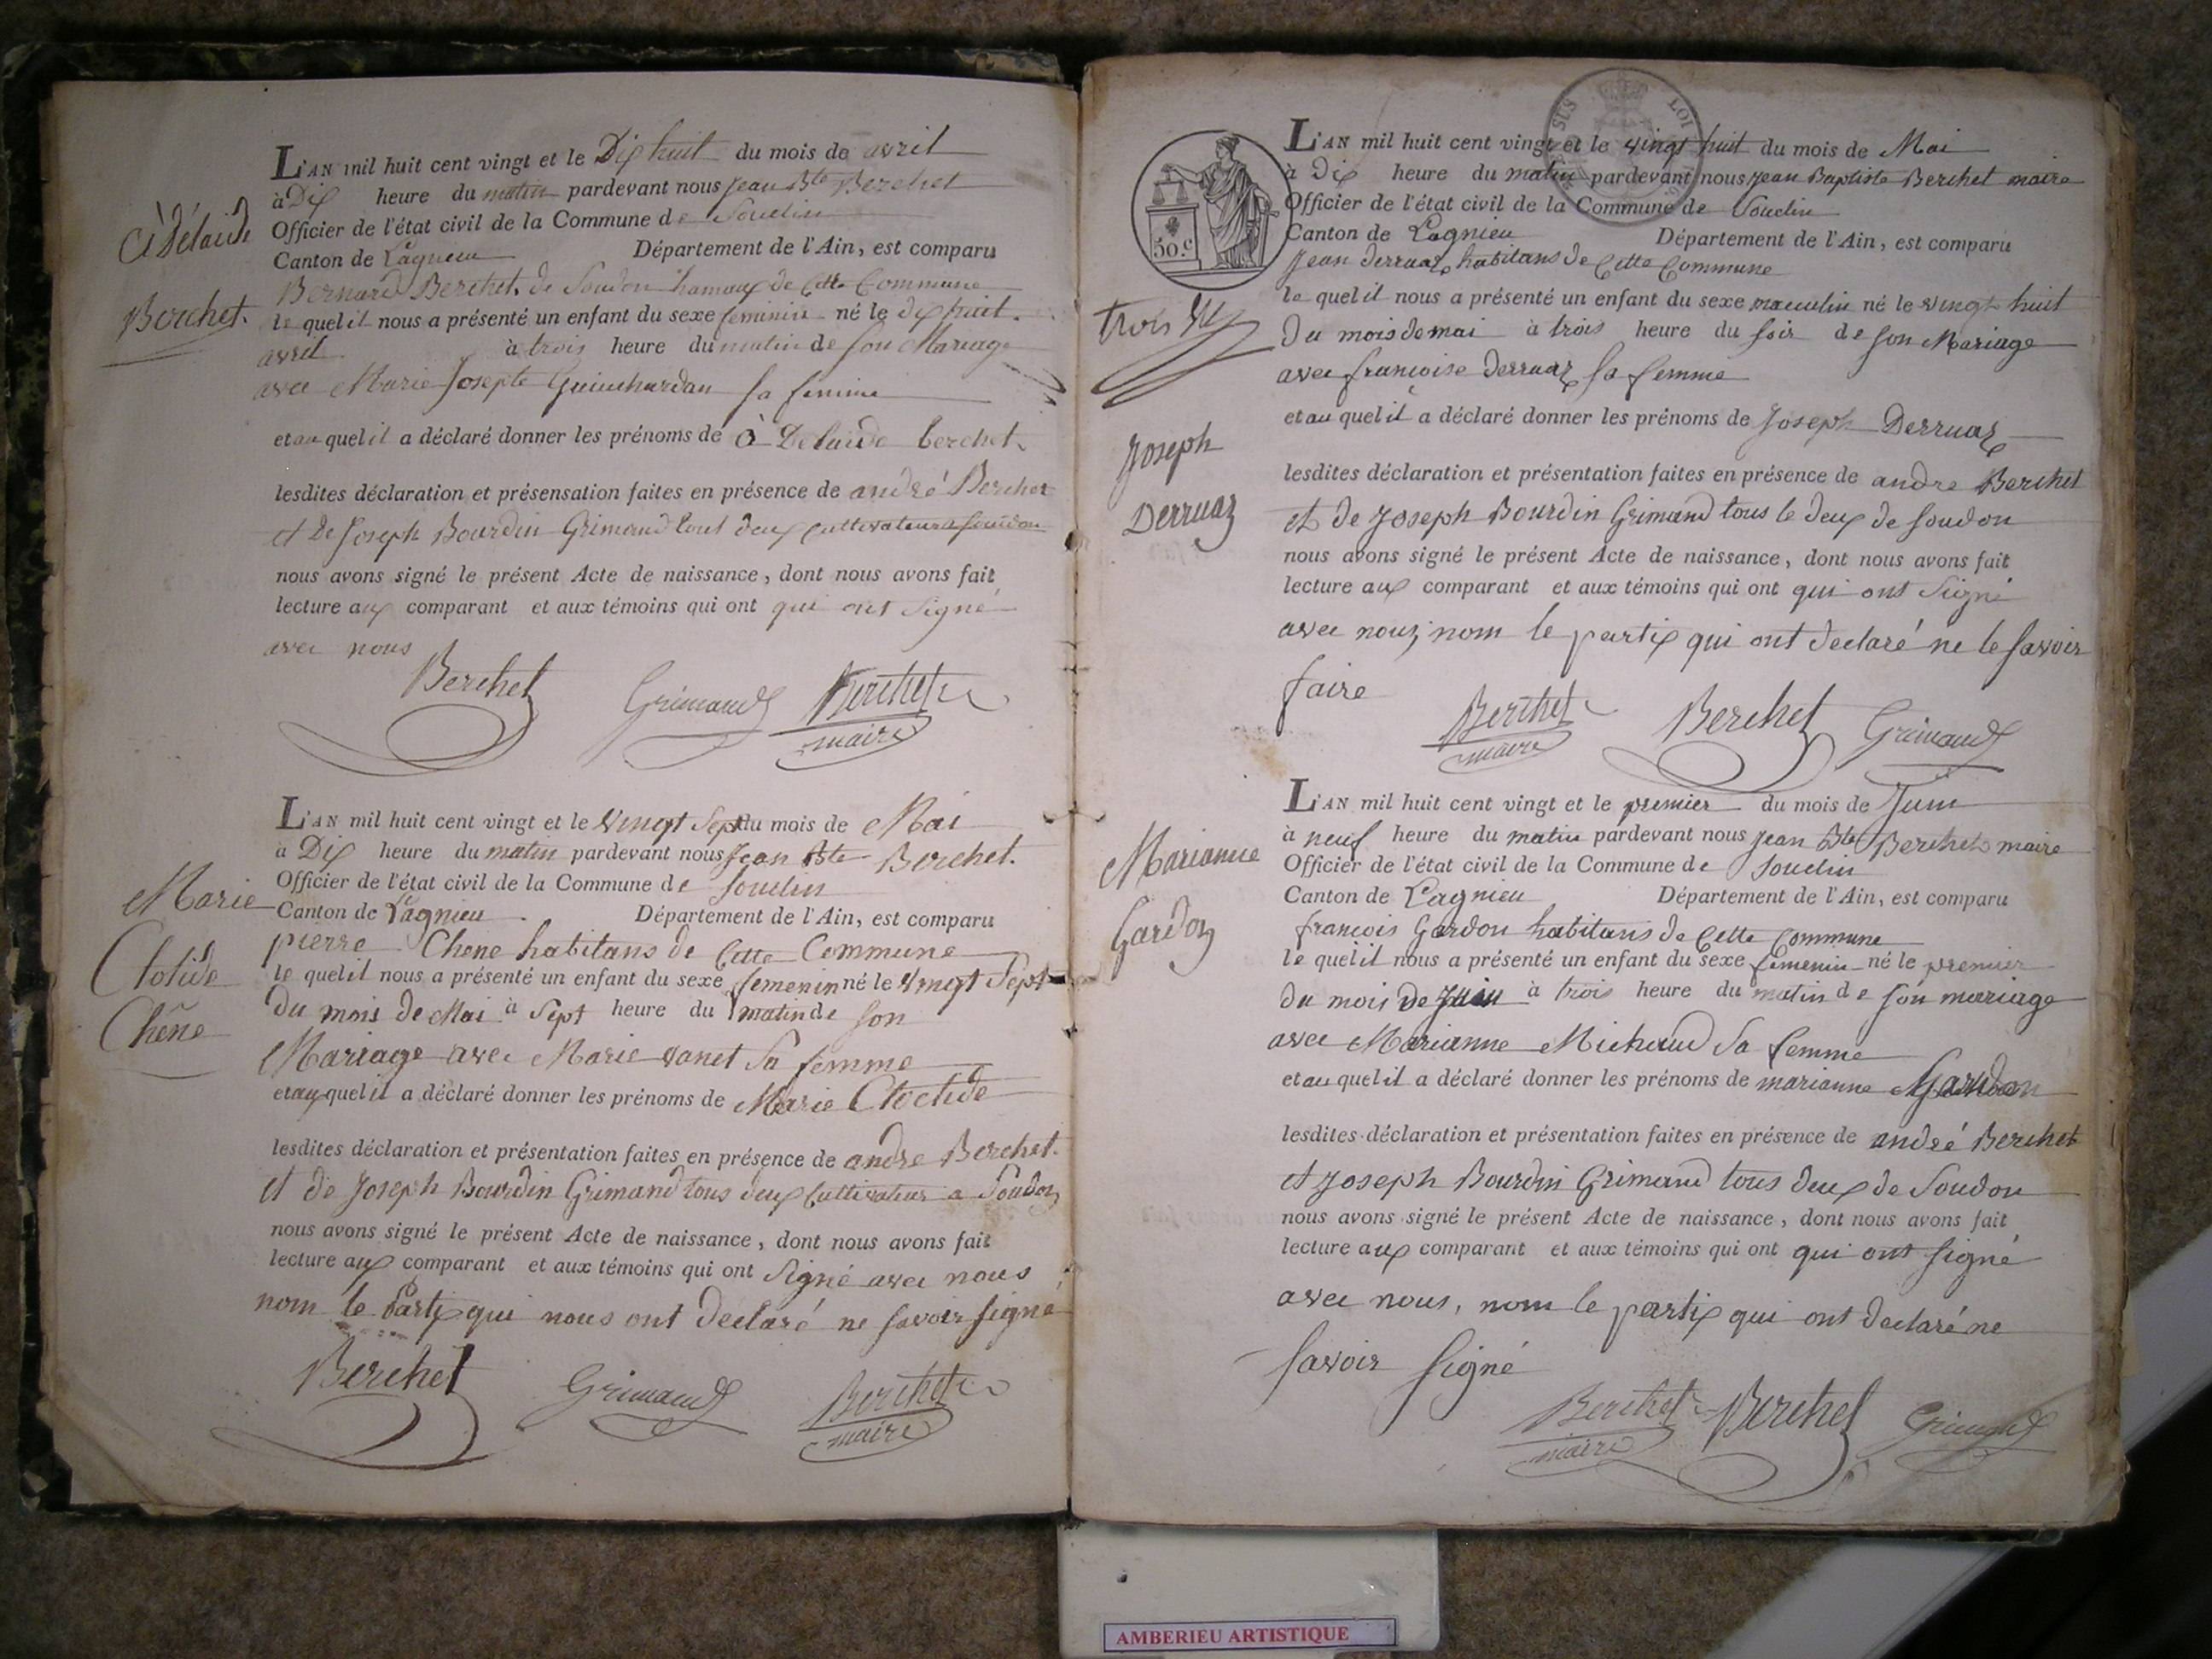 L'AN mil huit cent vingt et le Dix huit du mois de avril
à Dix heure du matin pardevant nous Jean Bte Berchet
Officier de l'état civil de la Commune de Souclin
Canton de Lagnieu Département de l'Ain, est comparu
Bernard Berchet de Soudon hamaux de Cette Commune
le quel il nous a présenté un enfant du sexe feminin né le dix huit
avril à trois heure du matin de son Mariage
avec Marie Josepte Guinchardan sa femme
et au quel il a déclaré donner les prénoms de À Delaide berchet
lesdites déclaration et présensation faites en présence de andré Berchet
et De Joseph Bourdin Grimand tout deux cultivateurs soudon
nous avons signé le présent Acte de naissance, dont nous avons fait
lecture aux comparant et aux témoins qui ont qui ont signé
avec nous
Berchet Grimand Berthet
maire
À Délaide
Berchet.
L'AN mil huit cent vingt et le vingt Sept du mois de Mai
à Dix heure du matin pardevant nous Jean Bte Berchet.
Officier de l'état civil de la Commune de Souclin
Canton de Lagnieu Département de l'Ain, est comparu
pierre Chene habitans de Cette Commune
le quel il nous a présenté un enfant du sexe femenin né le vingt Sept
Du mois de Mai à Sept heure du matin de son
Mariage avec Marie vanet Sa femme
et au quel il a déclaré donner les prénoms de Marie Cloctide
lesdites déclaration et présentation faites en présence de andre Berchet.
et de Joseph Bourdin Grimand tous deux Cultivateur a Soudon
nous avons signé le présent Acte de naissance, dont nous avons fait
lecture aux comparant et aux témoins qui ont signé avec nous
nom le Partix qui nous ont declaré ne savoir signé
Berchet Grimand Berthet
maire
Marie
Clotide
Chêne
SUS LOI
50.c
L'AN mil huit cent vingt et le vingt huit du mois de Mai
à Dix heure du matin pardevant nous Jean Baptiste Berchet maire
Officier de l'état civil de la Commune de Souclin
Canton de Lagnieu Département de l'Ain, est comparu
Jean Derruaz habitans de Cette Commune
le quel il nous a présenté un enfant du sexe masculin né le vingt huit
Du mois de mai à trois heure du soir de son Mariage
avec francoise Derruaz sa femme
et au quel il a déclaré donner les prénoms de Joseph Derruaz
lesdites déclaration et présentation faites en présence de andre Berchet
et de Joseph Bourdin Grimand tous le deux de soudon
nous avons signé le présent Acte de naissance, dont nous avons fait
lecture aux comparant et aux témoins qui ont qui ont signé
avec nous, nom le partix qui ont declaré ne le savoir
faire
Berthet Berchet Grimand
maire
trois
Joseph
Derruaz
L'AN mil huit cent vingt et le premier du mois de Juin
à neuf heure du matin pardevant nous Jean Bte Berchet maire
Officier de l'état civil de la Commune de Souclin
Canton de Lagnieu Département de l'Ain, est comparu
francois Gardon habitans de Cette Commune
le quel il nous a présenté un enfant du sexe femenin né le premier
du mois de Juin à trois heure du matin de son mariage
avec Marianne Michaud Sa femme
et au quel il a déclaré donner les prénoms de marianne Gardon
lesdites déclaration et présentation faites en présence de andré Berchet
et Joseph Bourdin Grimand tous deux de Soudon
nous avons signé le présent Acte de naissance, dont nous avons fait
lecture aux comparant et aux témoins qui ont qui ont signé
avec nous, nom le partix qui ont declaré ne
savoir signé
Berthet Berchet Grimand
maire
Marianne
Gardon
AMBERIEU ARTISTIQUE